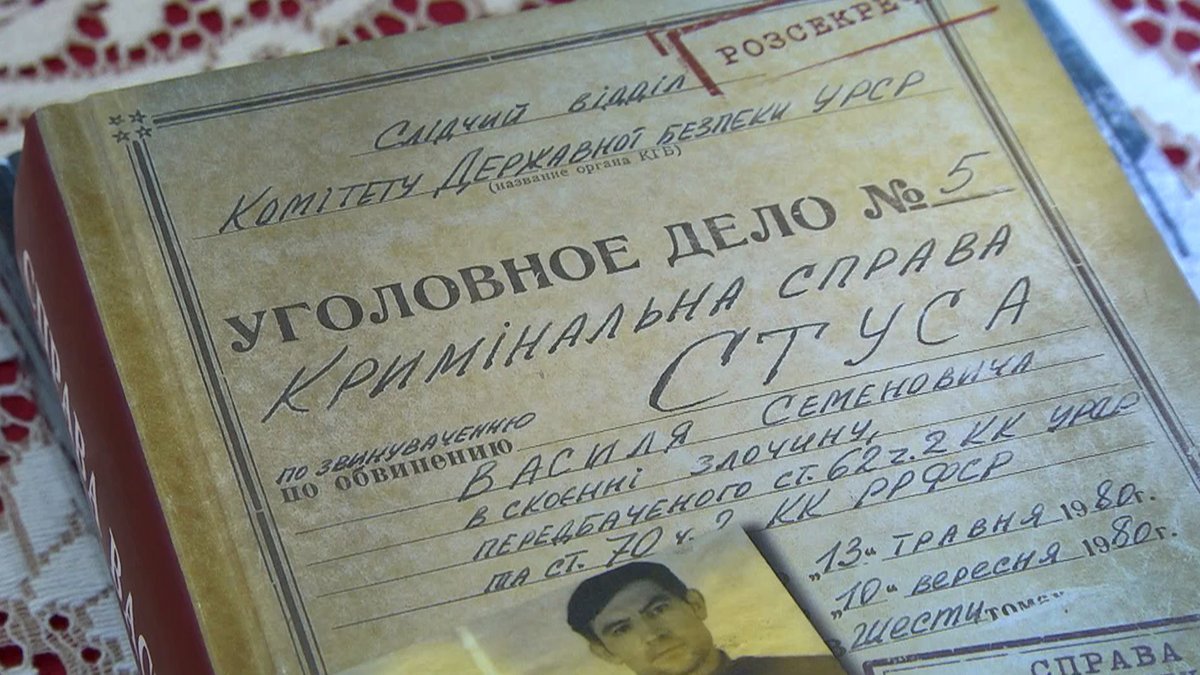 РОЗСЕКРЕЧ
Слідчий відділ
Комітету Державної Безпеки УРСР
(название органа КГБ)
УГОЛОВНОЕ ДЕЛО № 5
Кримінальна справа
СТУСА
по звинуваченню
по обвинению
Василя Семеновича
в скоєнні злочину,
передбаченого ст. 62 ч. 2 КК УРСР
та ст. 70 ч. 2 КК РРФСР
„13“ травня 1980г.
„10“ вересня 1980г.
в шести томах
СПРАВА
СПРАВА ВАС